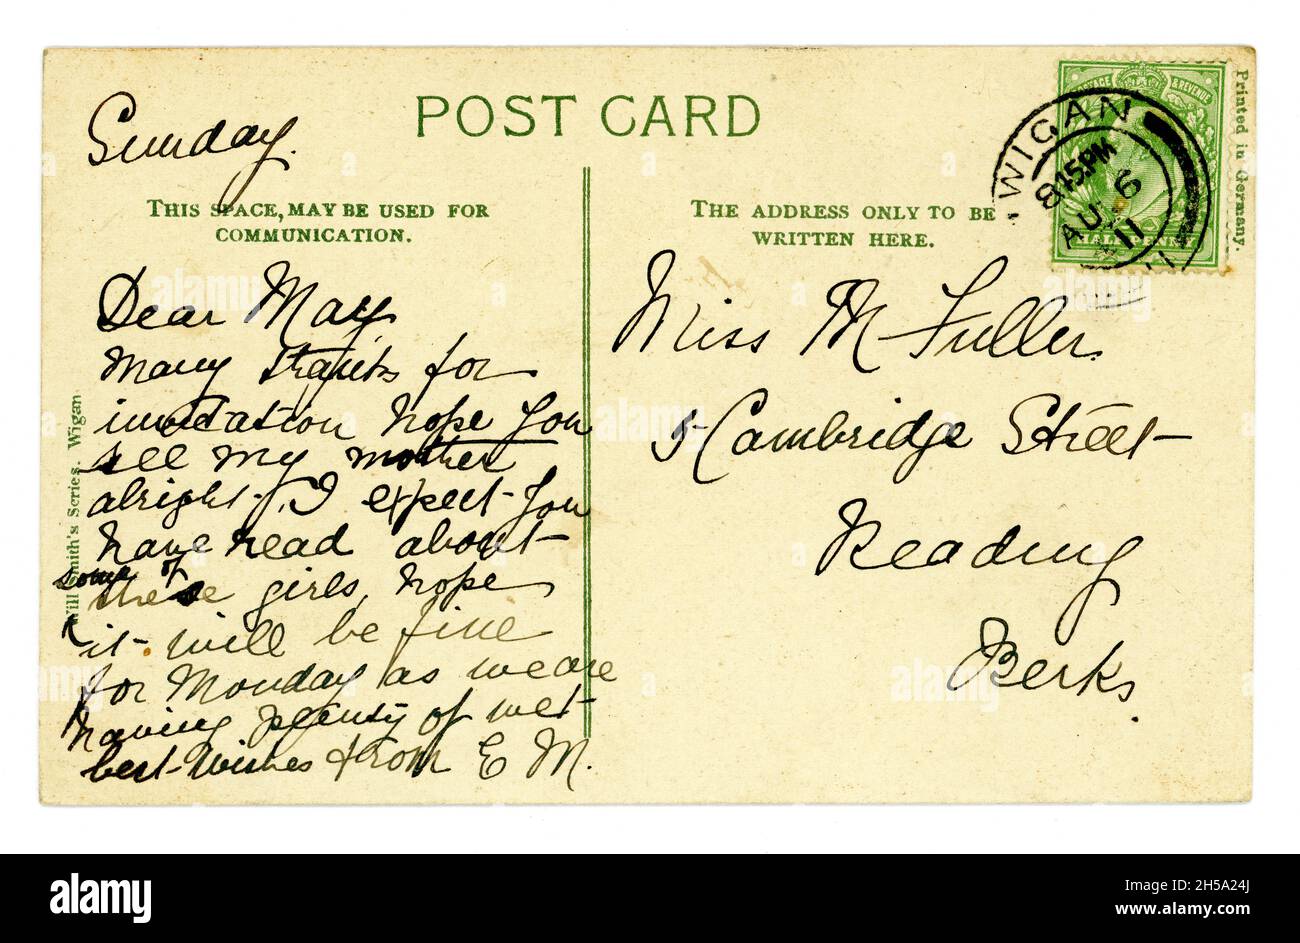 Sunday.
POST CARD
THIS SPACE, MAY BE USED FOR
COMMUNICATION.
Dear May
many thanks for
invitation hope you
see my mother
alright. I expect you
have read about
some of
these girls, hope
it will be fine
for Monday as we are
having plenty of wet
best wishes from E M.
Will Smith's Series. Wigan
THE ADDRESS ONLY TO BE
WRITTEN HERE.
Miss M Fuller.
5 Cambridge Street
Reading
Berks.
WIGAN
815 PM
AU 6
11
POSTAGE & REVENUE
HALFPENNY
Printed in Germany.
alamy
Image ID: 2H5A24J
www.alamy.com